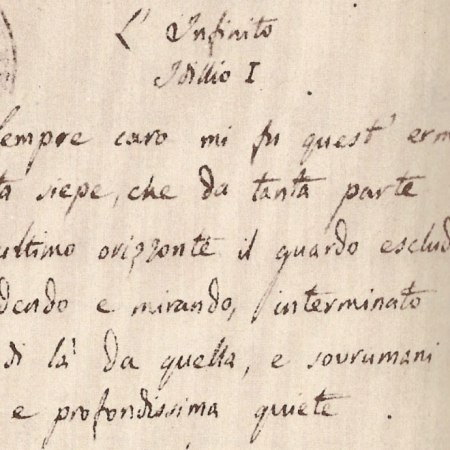 L' Infinito
Idillio I
Sempre caro mi fu quest' erm
ta siepe, che da tanta parte
ultimo orizzonte il guardo esclud
dendo e mirando, interminato
di là da quella, e sovrumani
e profondissima quiete